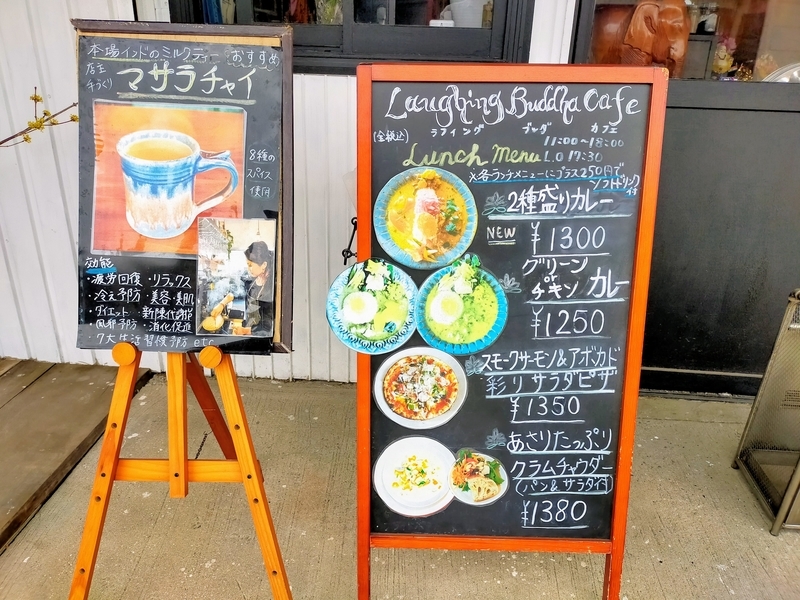 本場インドのミルクティー おすすめ
店主
手づくり
マサラチャイ
8種の
スパイス
使用
効能
・疲労回復 ・リラックス
・冷え予防 ・美容・美肌
・ダイエット ・新陳代謝UP
・風邪予防 ・消化促進
・7大生活習慣予防 etc
Laughing Buddha Cafe
(全税込) ラフィング ブッダ カフェ
11:00~18:00
Lunch Menu L.O 17:30
※各ランチメニューにプラス250円で
ソフトドリンク付
2種盛りカレー
NEW ¥1300
グリーン
or
チキン カレー
¥1250
スモークサーモン&アボカド
彩りサラダピザ
¥1350
あさりたっぷり
クラムチャウダー
(パン&サラダ付)
¥1380